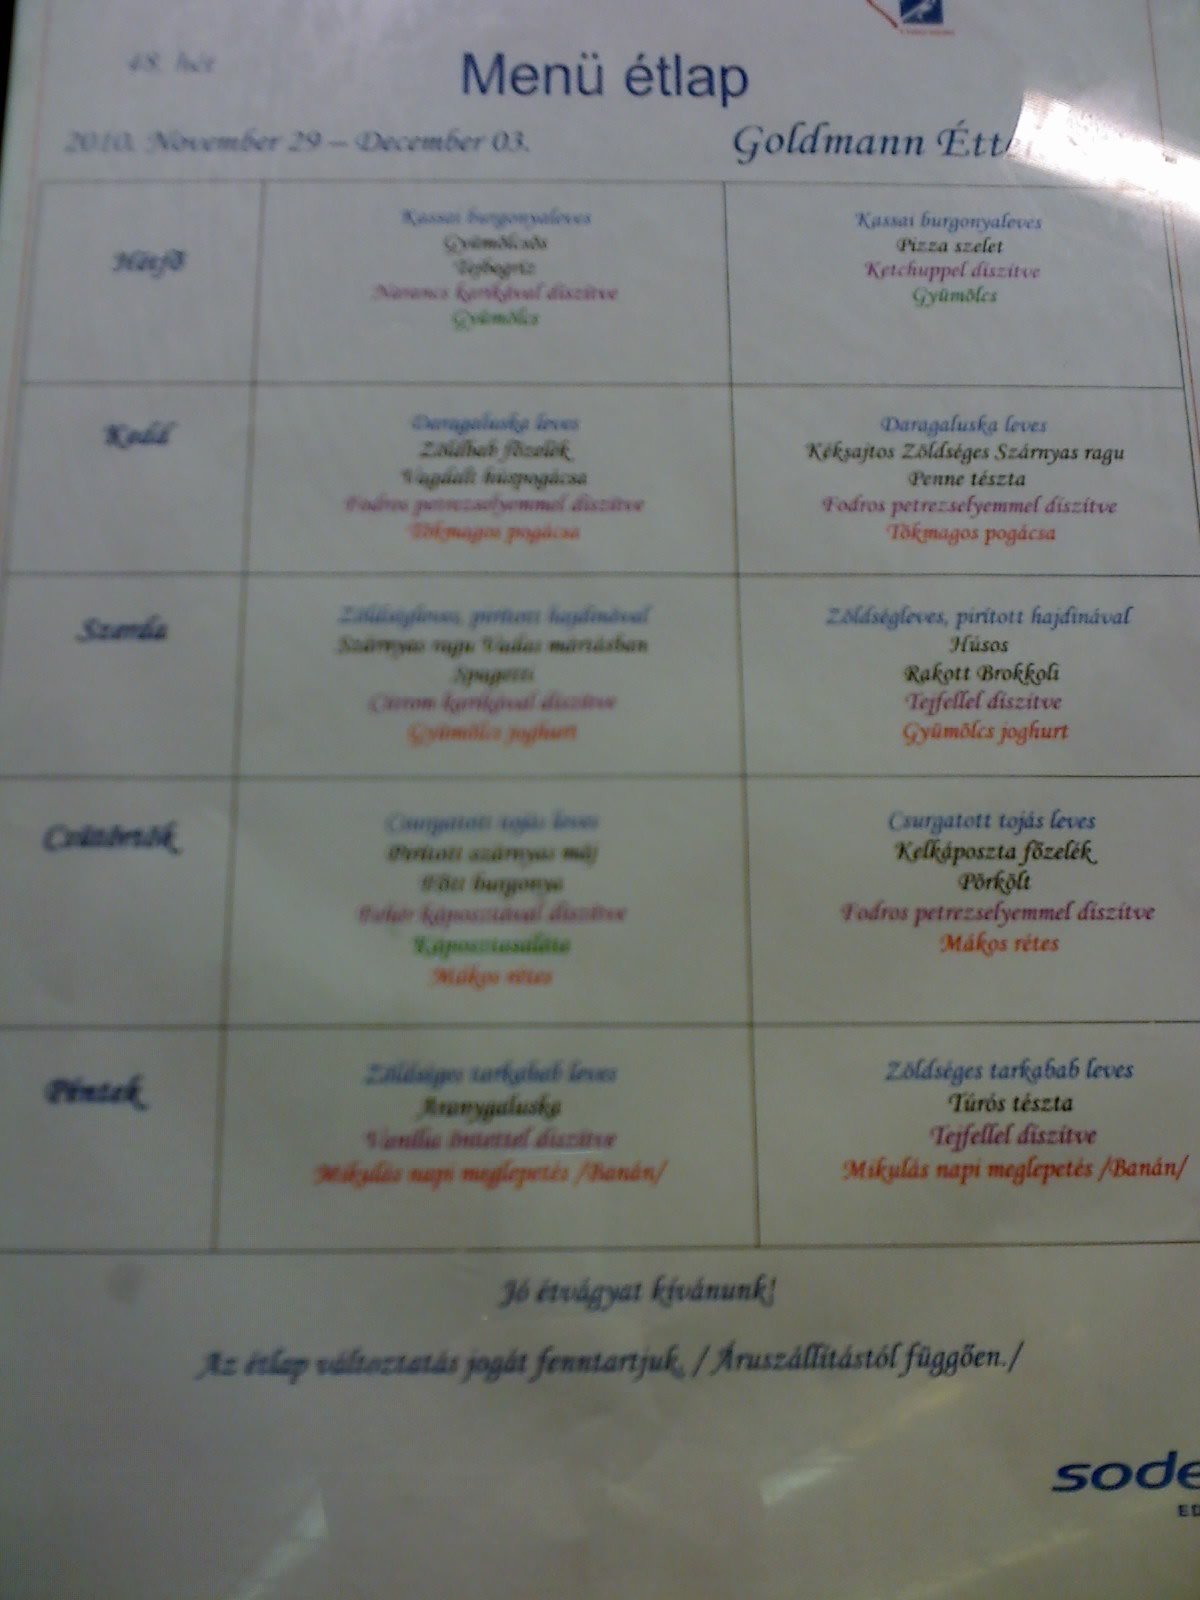 48. hét
Menü étlap
2010. November 29 – December 03.
Goldmann Étte
Hétfő
Kassai burgonyaleves
Gyümölcsös
Tejbegríz
Narancs karikával díszítve
Gyümölcs
Kassai burgonyaleves
Pizza szelet
Ketchuppel díszítve
Gyümölcs
Kedd
Daragaluska leves
Zöldbab főzelék
Vagdalt húspogácsa
Fodros petrezselyemmel díszítve
Tökmagos pogácsa
Daragaluska leves
Kéksajtos Zöldséges Szárnyas ragu
Penne tészta
Fodros petrezselyemmel díszítve
Tökmagos pogácsa
Szerda
Zöldségleves, pirított hajdinával
Szárnyas ragu Vadas mártásban
Spagetti
Citrom karikával díszítve
Gyümölcs joghurt
Zöldségleves, pirított hajdinával
Húsos
Rakott Brokkoli
Tejfellel díszítve
Gyümölcs joghurt
Csütörtök
Csurgatott tojás leves
Pirított szárnyas máj
Főtt burgonya
Fehér káposztával díszítve
Káposztasaláta
Mákos rétes
Csurgatott tojás leves
Kelkáposzta főzelék
Pörkölt
Fodros petrezselyemmel díszítve
Mákos rétes
Péntek
Zöldséges tarkabab leves
Aranygaluska
Vanília öntettel díszítve
Mikulás napi meglepetés /Banán/
Zöldséges tarkabab leves
Túrós tészta
Tejfellel díszítve
Mikulás napi meglepetés /Banán/
Jó étvágyat kívánunk!
Az étlap változtatás jogát fenntartjuk. / Áruszállítástól függően./
sode
ED